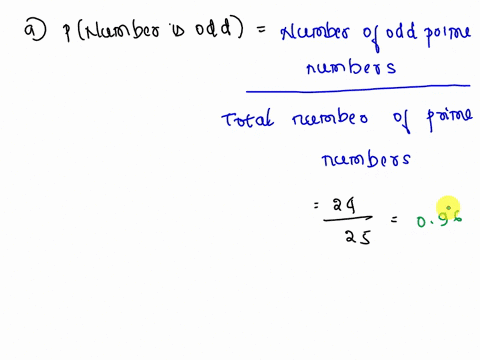 a) P(Number is odd) = Number of odd prime
numbers
Total number of prime
numbers
= 24
25 = 0.96